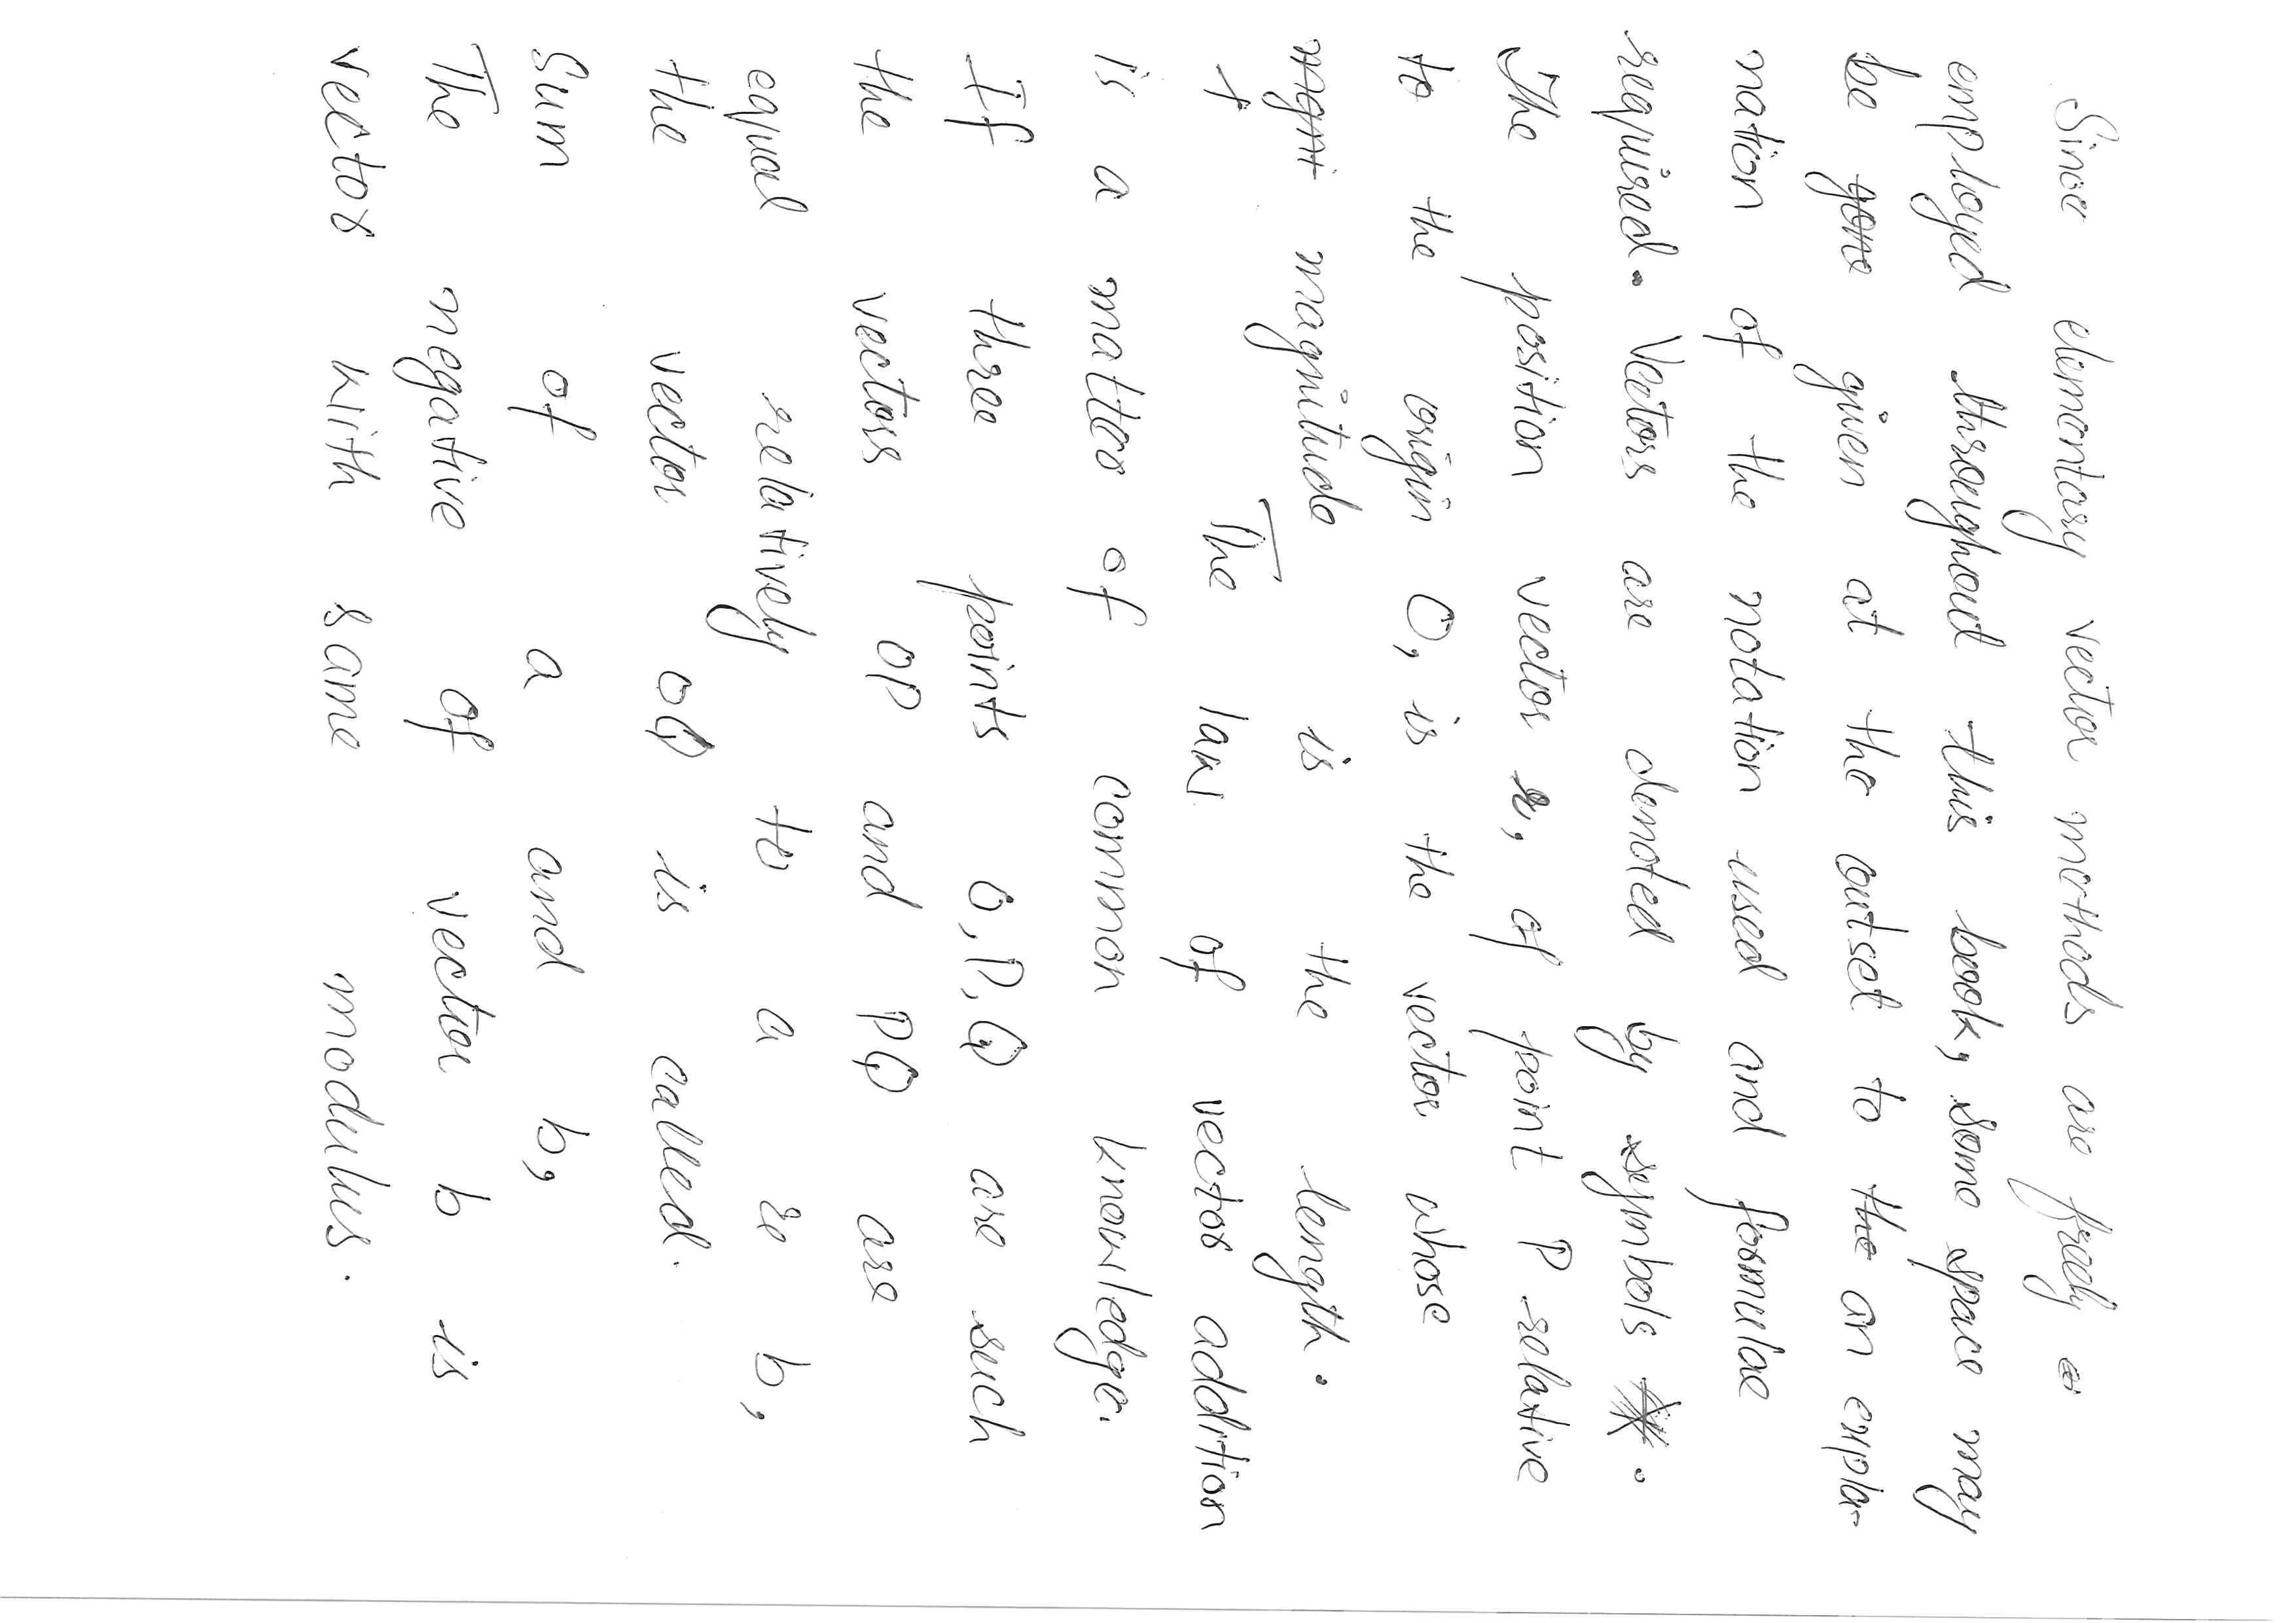 Since elementary vector methods are freely
employed throughout this book, some space may
be gone given at the outset to the an expla-
nation of the notation used and formulae
required. Vectors are denoted by symbols .
The position vector r, of point P relative
to the origin O, is the vector whose
mgni magnitude is the length.
The law of vector addition
is a matter of common knowledge.
If three points O, P, Q are such
the vectors OP and PQ are
equal relatively to a b,
the vector OQ is called.
Sum of a and b,
The negative of vector b is
vector with same modulus.